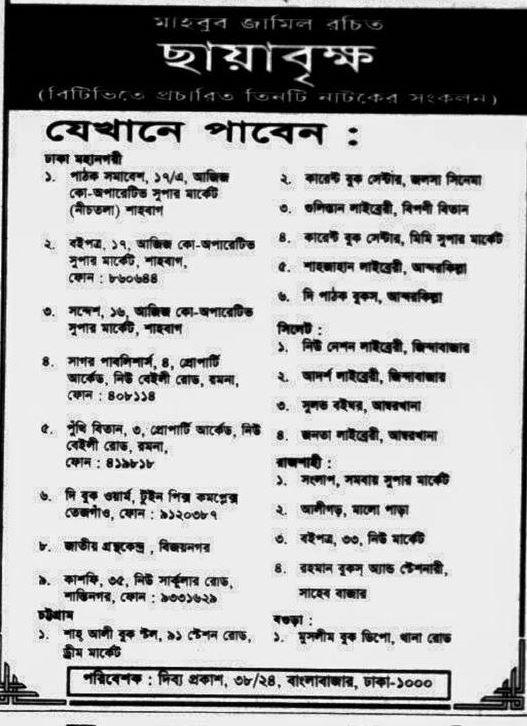 মাহবুব জামিল রচিত
ছায়াবৃক্ষ
(বিটিভিতে প্রচারিত তিনটি নাটকের সংকলন)
যেখানে পাবেন :
ঢাকা মহানগরী
১. পাঠক সমাবেশ, ১৭/এ, আজিজ
কো-অপারেটিভ সুপার মার্কেট
(নীচতলা) শাহবাগ
২. বইপত্র, ১৭, আজিজ কো-অপারেটিভ
সুপার মার্কেট, শাহবাগ,
ফোন : ৮৬০৬৪৪
৩. সন্দেশ, ১৬, আজিজ কো-অপারেটিভ
সুপার মার্কেট, শাহবাগ
৪. সাগর পাবলিশার্স, ৪, প্রোপার্টি
আর্কেড, নিউ বেইলী রোড, রমনা,
ফোন : ৪০৮১১৪
৫. পুঁথি বিতান, ৩, প্রোপার্টি আর্কেড, নিউ
বেইলী রোড, রমনা,
ফোন : ৪১৯৮১৮
৬. দি বুক ওয়ার্ম, টুইন পিক্স কমপ্লেক্স
তেজগাঁও, ফোন : ৯১২০৩৮৭
৮. জাতীয় গ্রন্থকেন্দ্র, বিজয়নগর
৯. কাশফি, ৩৫, নিউ সার্কুলার রোড,
শান্তিনগর, ফোন : ৯৩৩১৬২৯
চট্টগ্রাম
১. শাহ্ আলী বুক স্টল, ৯১ স্টেশন রোড,
ড্রীম মার্কেট
২. কারেন্ট বুক সেন্টার, জলসা সিনেমা
৩. গুলিস্তান লাইব্রেরী, বিপণী বিতান
৪. কারেন্ট বুক সেন্টার, মিমি সুপার মার্কেট
৫. শাহজাহান লাইব্রেরী, আন্দরকিল্লা
৬. দি পাঠক বুকস, আন্দরকিল্লা
সিলেট :
১. নিউ নেশন লাইব্রেরী, জিন্দাবাজার
২. আদর্শ লাইব্রেরী, জিন্দাবাজার
৩. সুলভ বইঘর, আম্বরখানা
৪. জনতা লাইব্রেরী, আম্বরখানা
রাজশাহী :
১. সংলাপ, সমবায় সুপার মার্কেট
২. আলীগড়, মালো পাড়া
৩. বইপত্র, ৩৩, নিউ মার্কেট
৪. রহমান বুকস্ অ্যান্ড স্টেশনারী,
সাহেব বাজার
বগুড়া :
১. মুসলীম বুক ডিপো, থানা রোড
পরিবেশক : দিব্য প্রকাশ, ৩৮/২৪, বাংলাবাজার, ঢাকা-১০০০